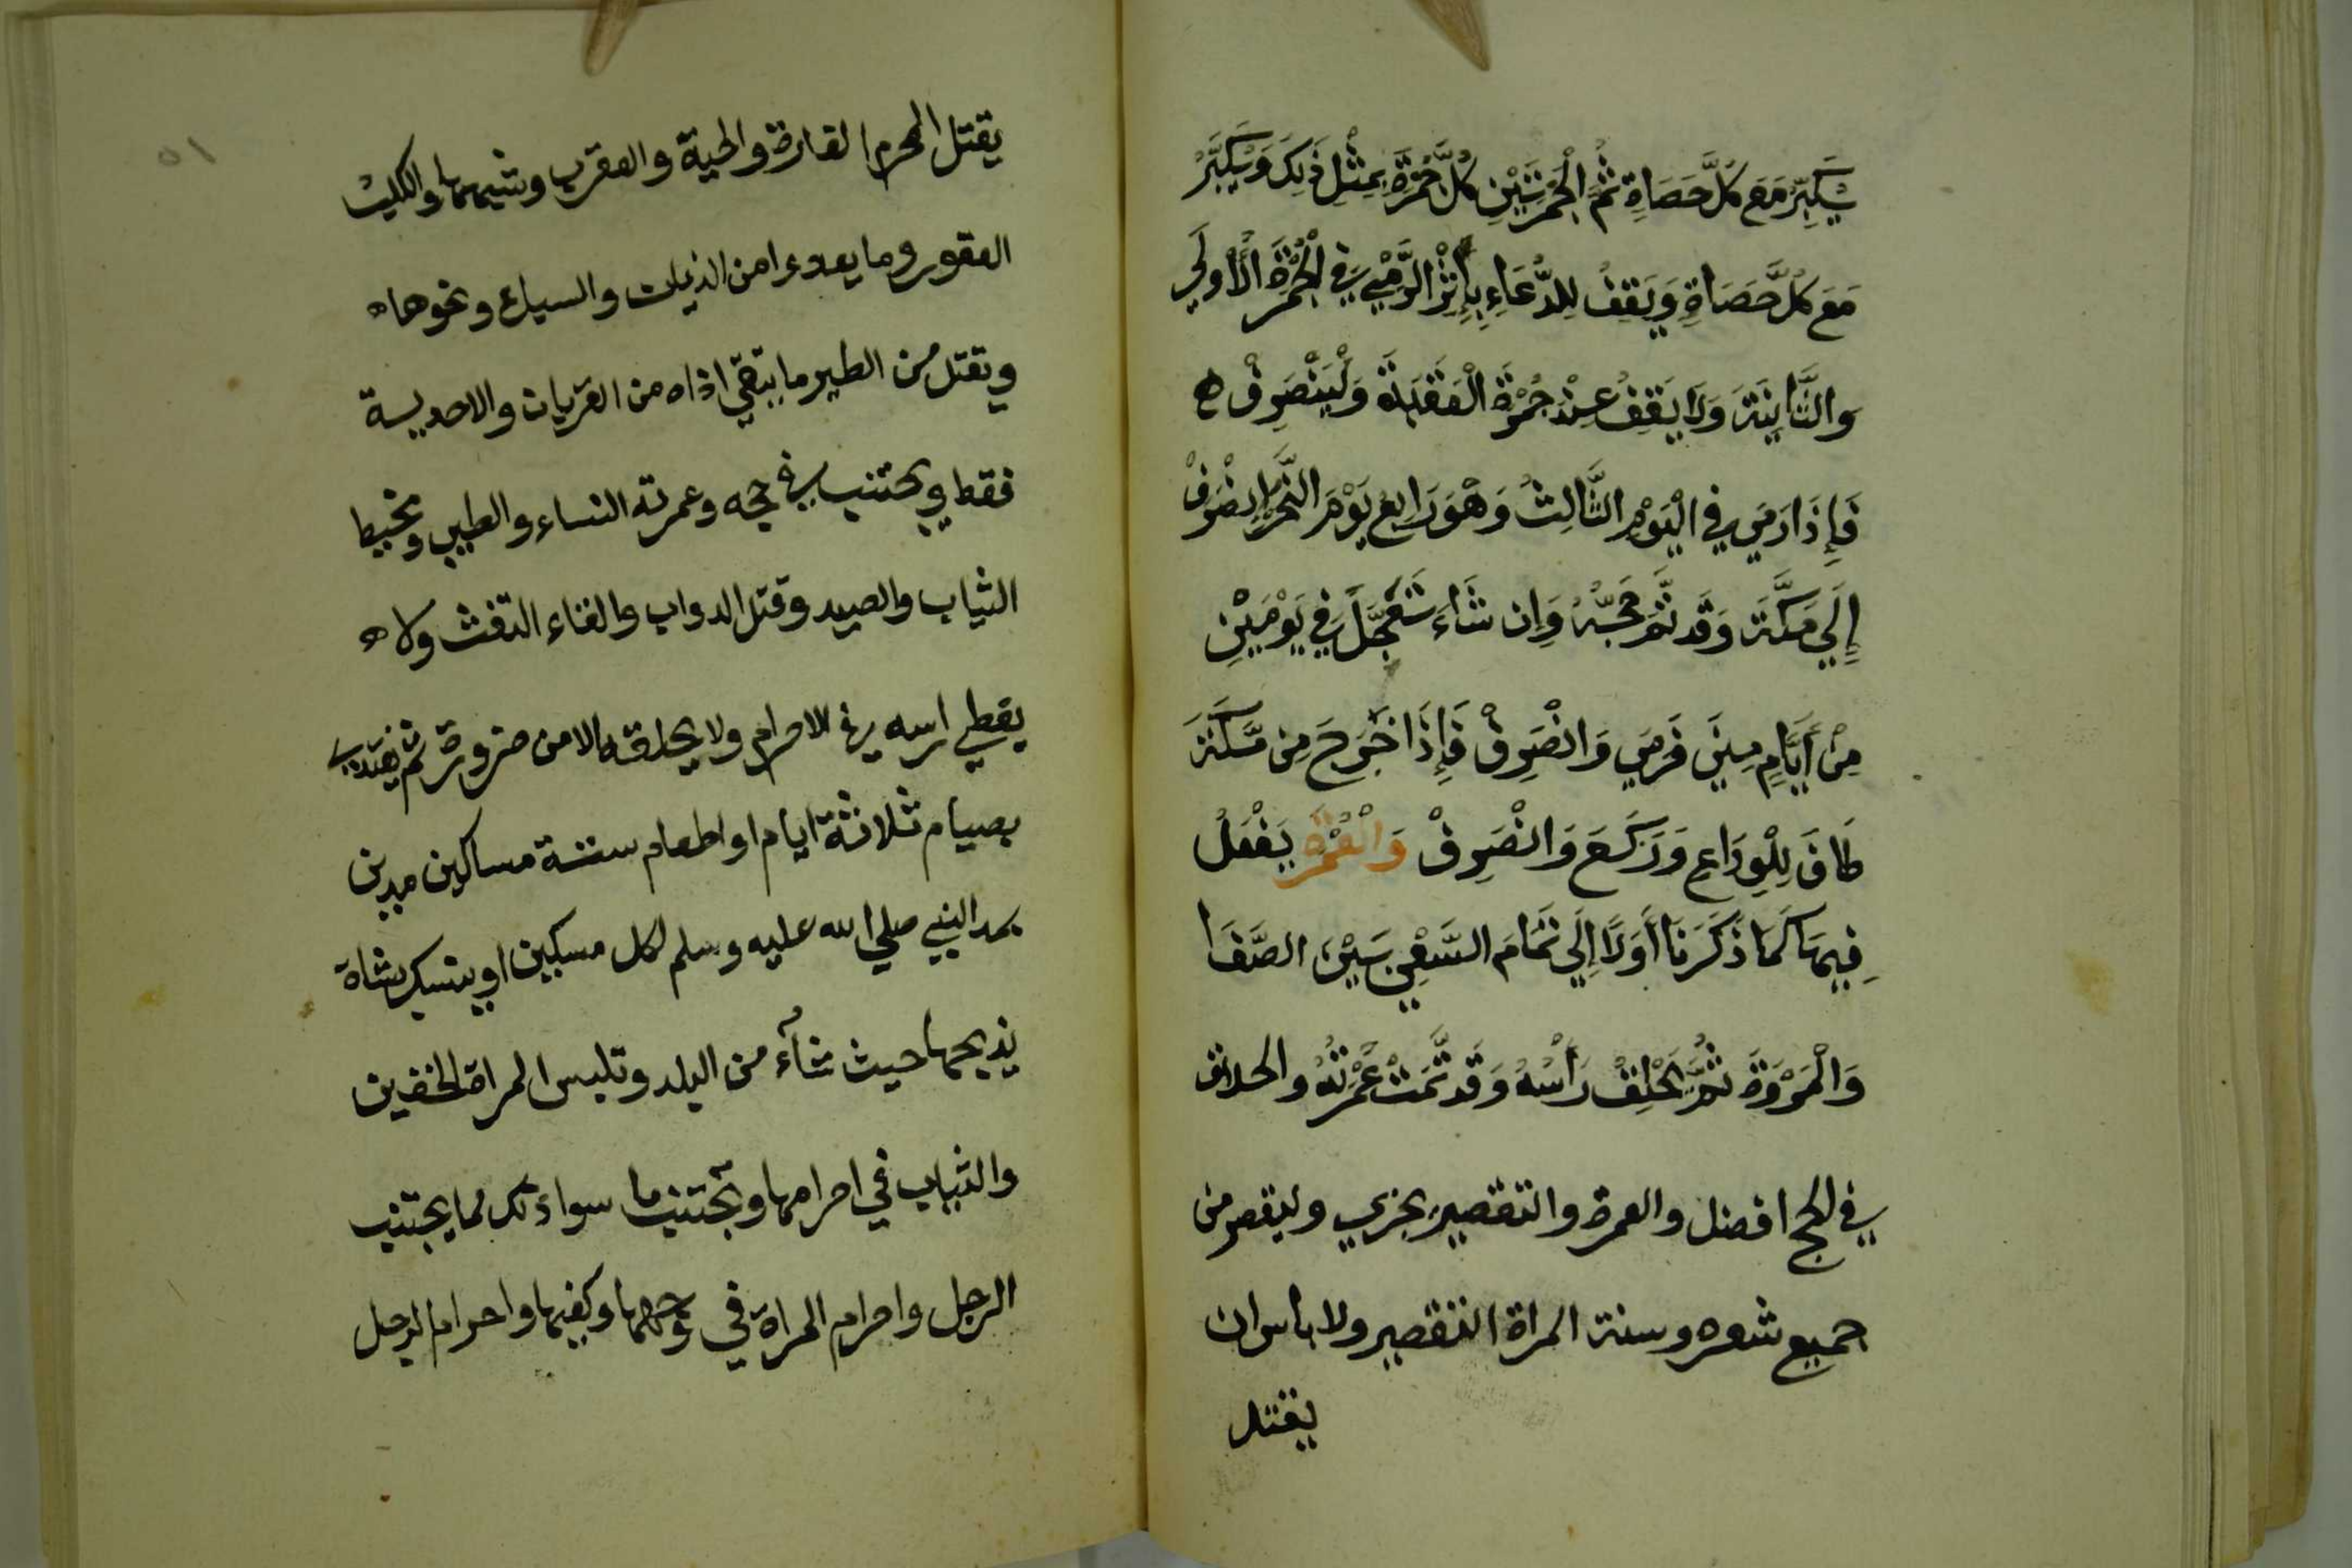 يُكَبِّرُ مَعَ كُلِّ حَصَاةٍ ثُمَّ الْجَمْرَتَيْنِ كُلَّ جَمْرَةٍ بِمِثْلِ ذَلِكَ وَيُكَبِّرُ
مَعَ كُلِّ حَصَاةٍ وَيَقِفُ لِلدُّعَاءِ بِإِثْرِ الرَّمْيِ فِي الْجَمْرَةِ الْأُولَي
وَالثَّانِيَةِ وَلَا يَقِفُ عِنْدَ جَمْرَةِ الْعَقَبَةِ وَلْيَنْصَرِفْ ه
فَإِذَا رَمَي فِي الْيَوْمِ الثَّالِثِ وَهُوَ رَابِعُ يَوْمِ النَّحْرِ انْصَرَفَ
إِلَي مَكَّةَ وَقَد تَّمَّ حَجُّهُ وَإِن شَاءَ تَعَجَّلَ فِي يَوْمَيْنِ
مِنْ أَيَّامِ مِنَي فَرَمَي وَانْصَرَفَ فَإِذَا خَرَجَ مِن مَّكَّةَ
طَافَ لِلْوِدَاعِ وَرَكَعَ وَانْصَرَفَ وَالْعُمْرَةُ يَفْعَلُ
فِيهَا كَمَا ذَكَرْنَا أَوَلَاً إِلَي تَمَامِ السَّعْيِ بَيْنَ الصَّفَا
وَالْمَرْوَةَ ثُمَّ يَحْلِقُ رَأْسَهُ وَقَد تَّمَّتْ عُمْرَتُهُ والحلاق
في الحج افضل والعمرة والتقصير يجزي وليقصر من
جميع شعره وسنة المراة التقصير ولا باس ان
يقتل
٥١
يقتل المحرم الفارة والحية والعقرب وشبهها والكلب
العقور وما يعدوا من الذياب والسباع ونحوها ه
ويقتل من الطير ما يتقي اذاه من الغربان والاحدية
فقط ويجتنب في حجه وعمرته النساء والطيب ومخيط
الثياب والصيد وقتل الدواب والغاء التفث ولا ه
يغطي راسه في الاحرام ولا يحلقه الا من ضرورة ثم يفتدي
بصيام ثلاثة ايام او اطعام ستة مساكين مدين
بمد النبي صلي الله عليه وسلم لكل مسكين او ينسك بشاة
يذبحها حيث شاء من البلد وتلبس المراة الخفين
والثياب في احرامها وتجتنب ما سواء ذلك لما يجتنب
الرجل واحرام المراة في وجهها وكفيها واحرام الرجل